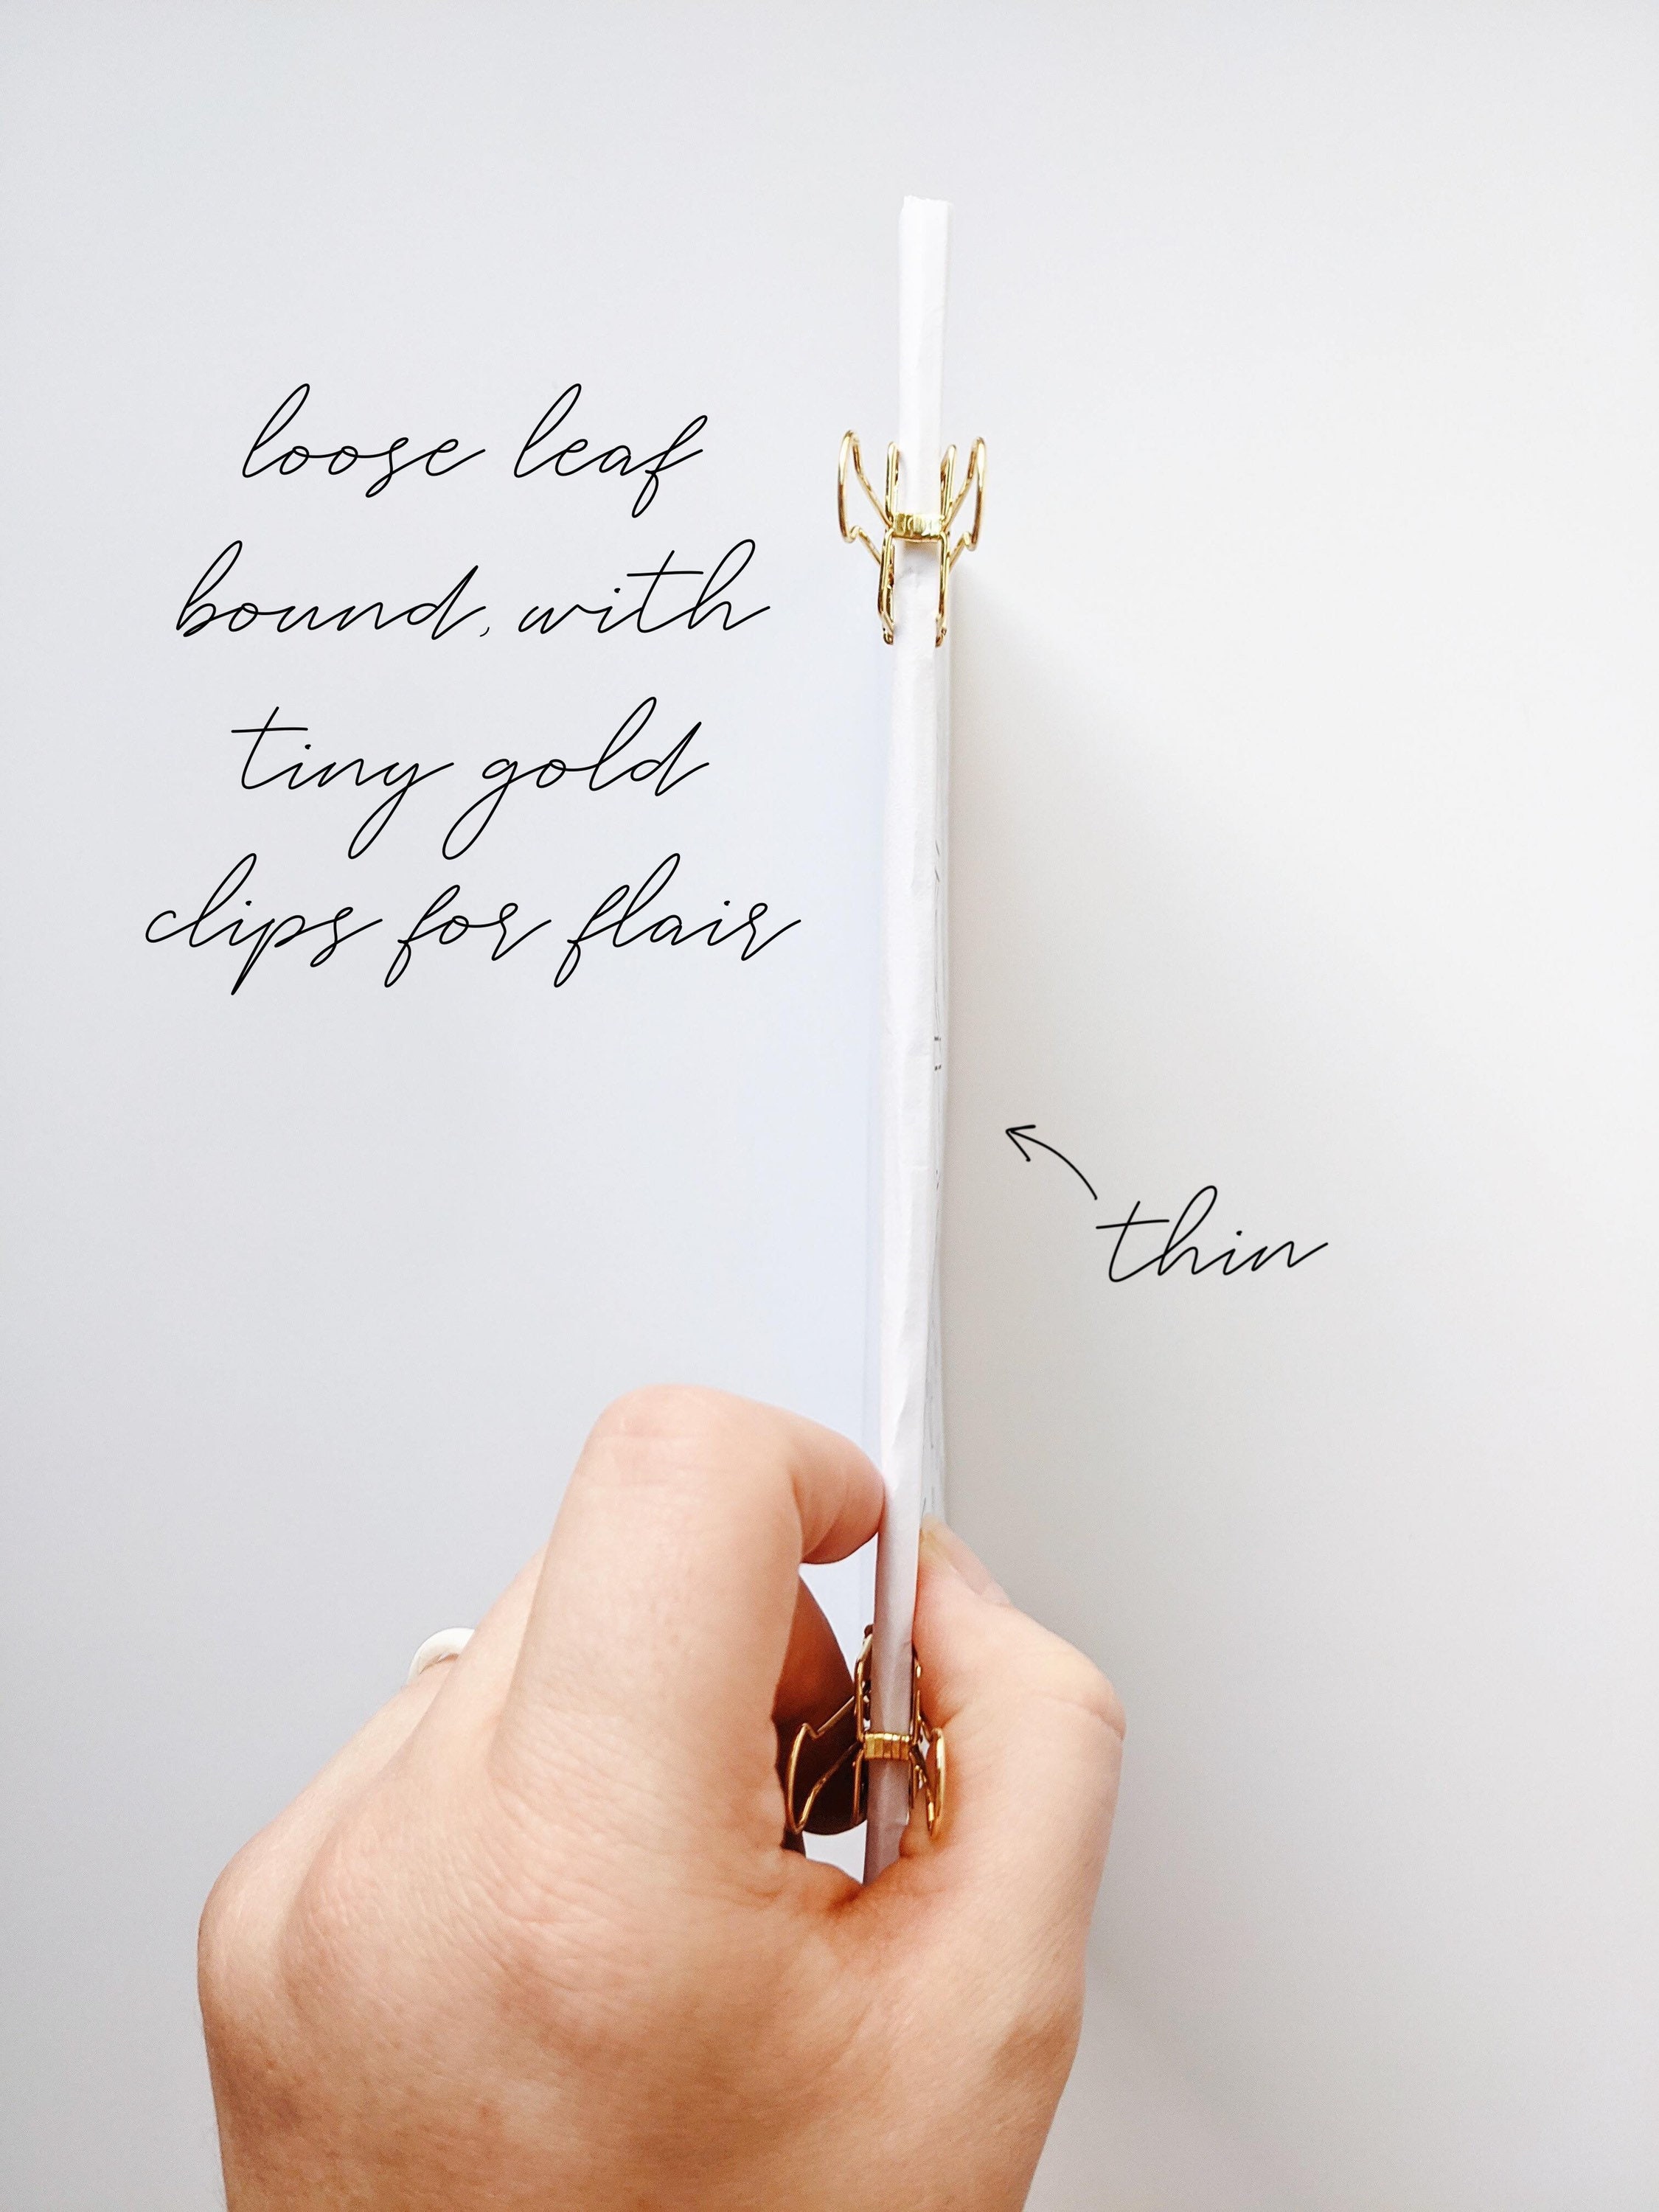 loose leaf
bound, with
tiny gold
clips for flair
thin